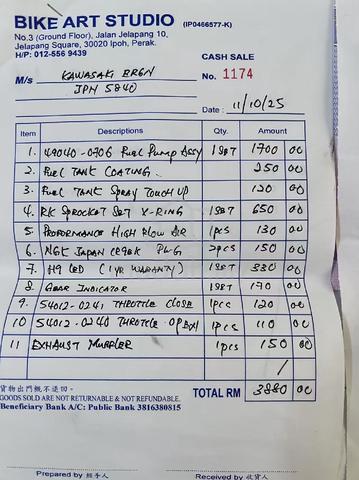 BIKE ART STUDIO (IP0466577-K)
No.3 (Ground Floor), Jalan Jelapang 10,
Jelapang Square, 30020 Ipoh, Perak.
H/P: 012-556 9439
CASH SALE
M/s KAWASAKI ER6N No. 1174
JPN 5840
Date : 11/10/25
Item Descriptions Qty. Amount
1. 49040-0706 Fuel Pump Assy 1SET 1700 00
2. Fuel TANK COATING. 250 00
3. Fuel TANK SPRAY TOUCH UP 120 00
4. RK SPROCKET SET X-RING 1SET 650 00
5 PROFORMANCE HIGH FLOW AIR 1pcs 130 00
6. NGK JAPAN CR9EK PLUG 2pcs 150 00
7. H9 LED (1YR WARANTY) 1SET 330 00
8. GEAR INDICATOR 1SET 170 00
9. 54012-0241 THROTTLE CLOSE 1pcs 120 00
10 54012-0240 THROTTLE OPEN 1pcs 110 00
11 EXHAUST MUFFLER 1pcs 150 00
/
貨物出門概不退回。
GOODS SOLD ARE NOT RETURNABLE & NOT REFUNDABLE.
TOTAL RM 3880 00
Beneficiary Bank A/C: Public Bank 3816380815
Prepared by 經手人 Received by 收貨人